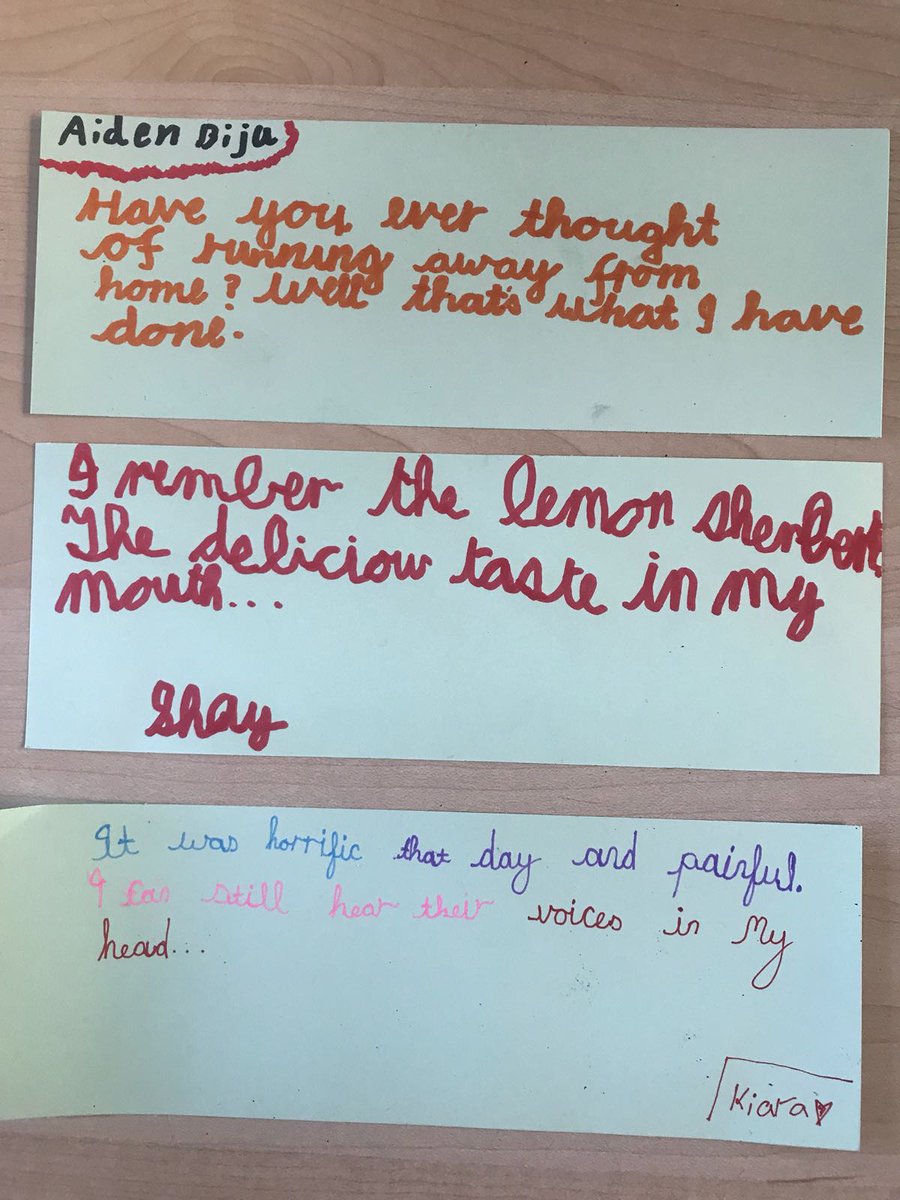 Aiden Bija
Have you ever thought
of running away from
home? Well that's what I have
done.
I rember the lemon sherbert.
The deliciow taste in my
mouth...
Shay
It was horrific that day and painful.
I can still hear their voices in my
head...
Kiara